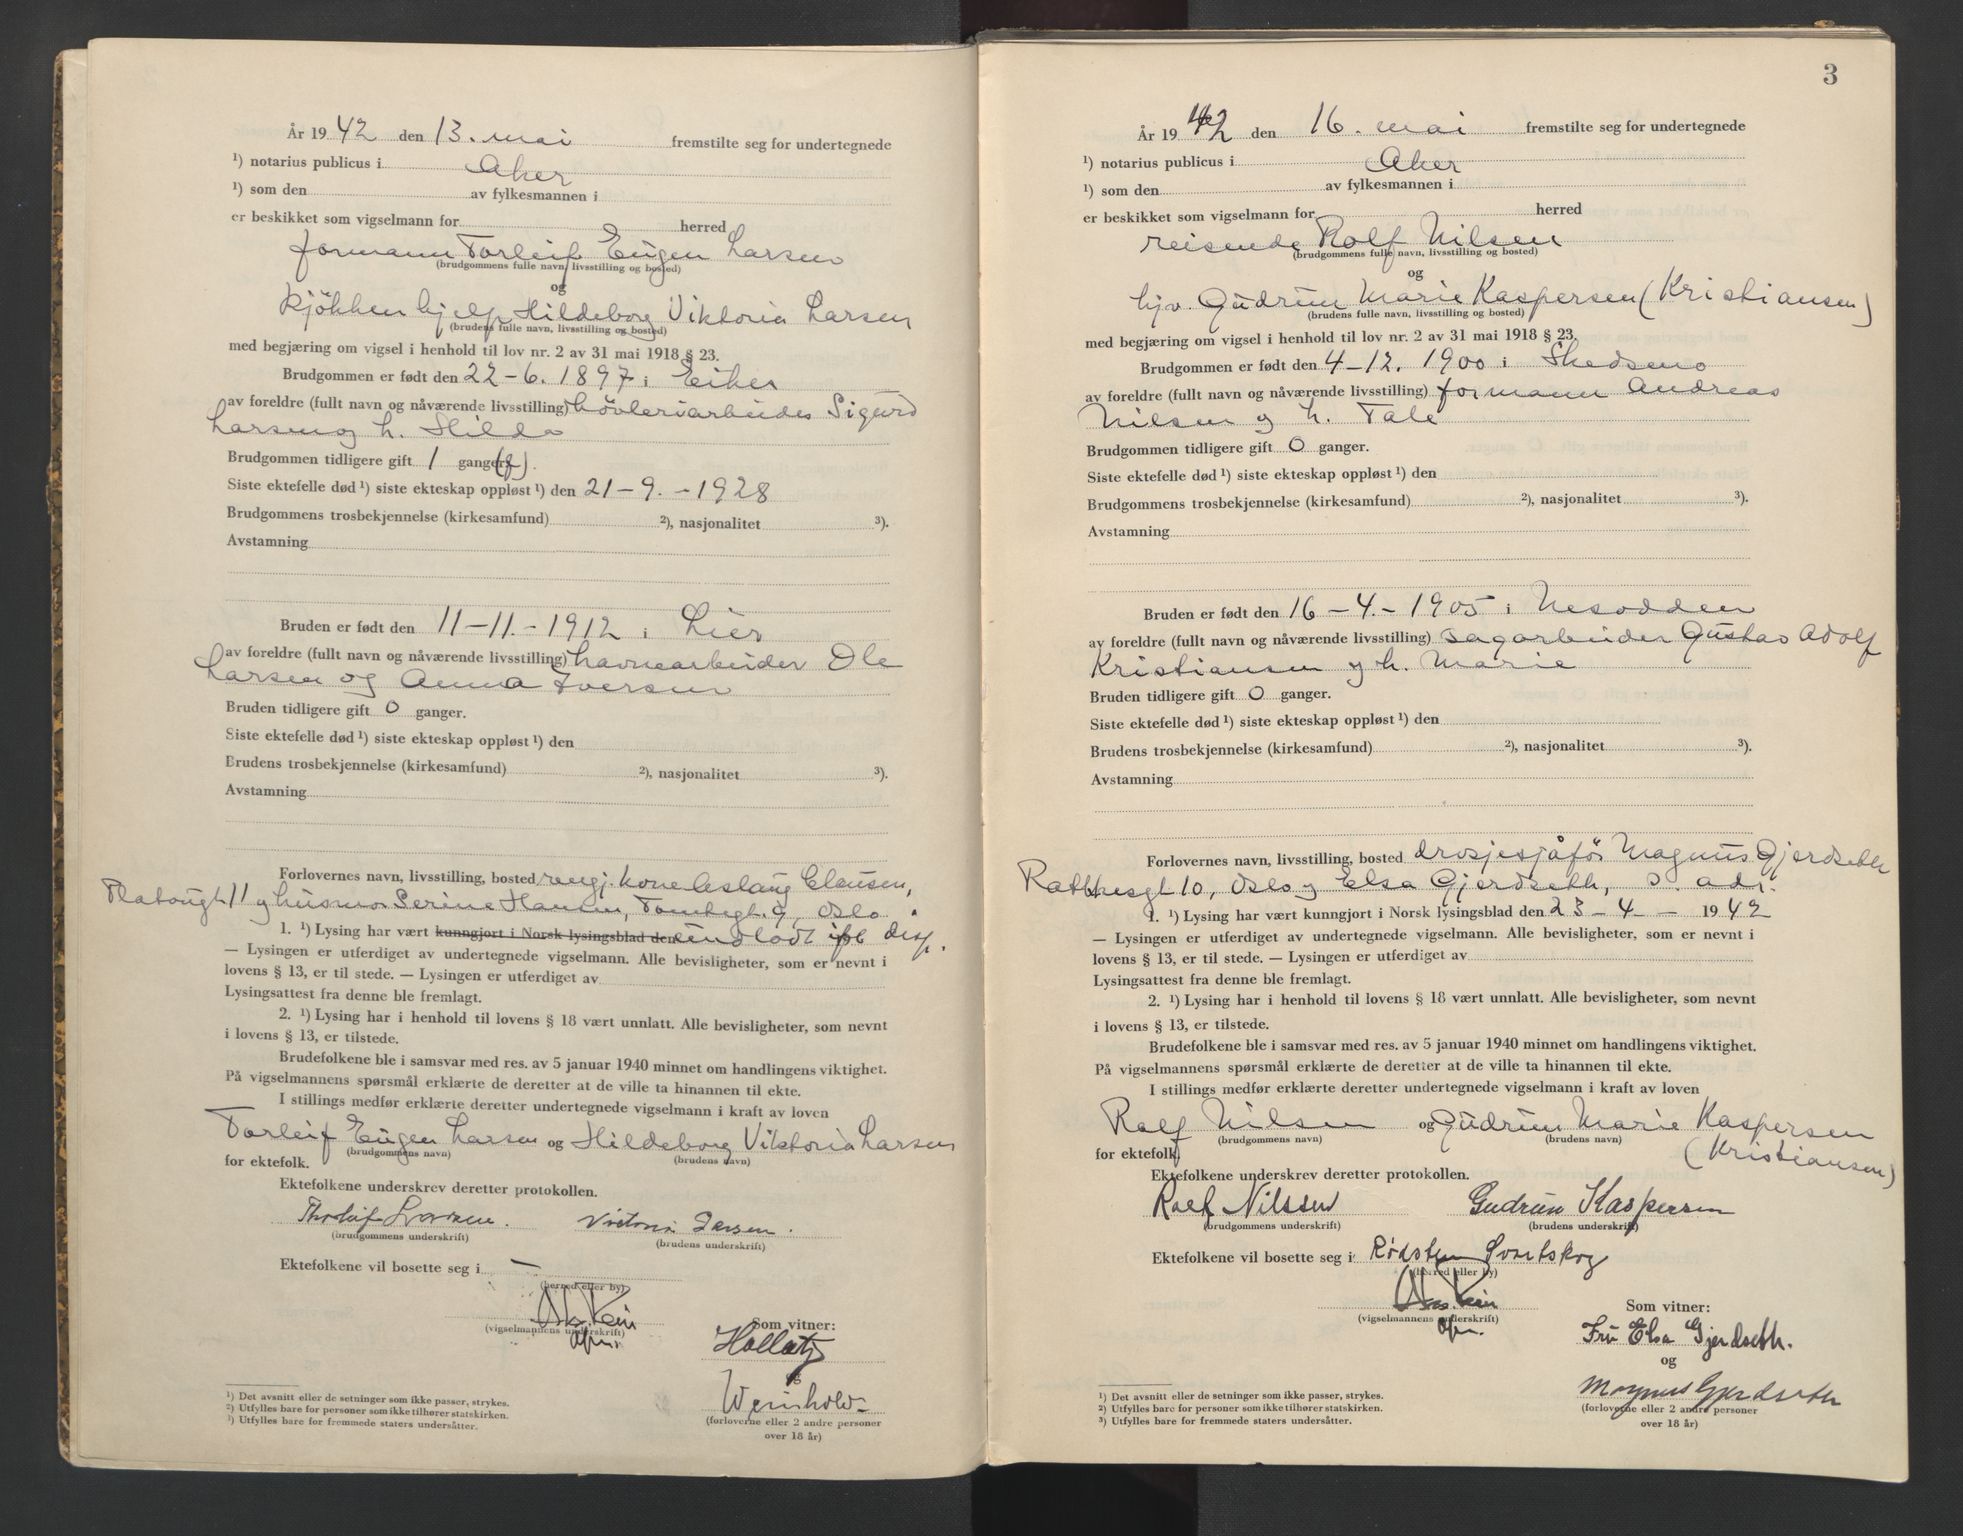 År 1942 den 13. mai fremstilte seg for undertegnede
¹) notarius publicus i Aker
¹) som den av fylkesmannen i
er beskikket som vigselmann for herred
formann Torleif Eugen Larsen
(brudgommens fulle navn, livsstilling og bosted)
og
kjökkenhjelp Hildeborg Viktoria Larsen
(brudens fulle navn, livsstilling og bosted)
med begjæring om vigsel i henhold til lov nr. 2 av 31 mai 1918 § 23.
Brudgommen er født den 22-6. 1897 i Eiker
av foreldre (fullt navn og nåværende livsstilling) hövleriarbeider Sigurd
Larsen og h. Hilda
Brudgommen tidligere gift 1 ganger (f).
Siste ektefelle død ¹) siste ekteskap oppløst ¹) den 21-9.-1928
Brudgommens trosbekjennelse (kirkesamfund) ²), nasjonalitet ³).
Avstamning
Bruden er født den 11-11.-1912 i Lier
av foreldre (fullt navn og nåværende livsstilling) havnearbeider Ole
Larsen og Anna Iversen
Bruden tidligere gift 0 ganger.
Siste ektefelle død ¹) siste ekteskap oppløst ¹) den
Brudens trosbekjennelse (kirkesamfund) ²), nasjonalitet ³).
Avstamning
Forlovernes navn, livsstilling, bosted rengj.kone Aslaug Clausen,
Platougt 11 og husmor Serine Hansen, Tomtegt. 9, Oslo.
1. ¹) Lysing har vært kunngjort i Norsk lysingsblad den undladt ifl. disp.
— Lysingen er utferdiget av undertegnede vigselmann. Alle bevisligheter, som er nevnt i
lovens § 13, er til stede. — Lysingen er utferdiget av
Lysingsattest fra denne ble fremlagt.
2. ¹) Lysing har i henhold til lovens § 18 vært unnlatt. Alle bevisligheter, som nevnt
i lovens § 13, er tilstede.
Brudefolkene ble i samsvar med res. av 5 januar 1940 minnet om handlingens viktighet.
På vigselmannens spørsmål erklærte de deretter at de ville ta hinannen til ekte.
I stillings medfør erklærte deretter undertegnede vigselmann i kraft av loven
Torleif Eugen Larsen og Hildeborg Viktoria Larsen
(brudgommens navn) (brudens navn)
for ektefolk.
Ektefolkene underskrev deretter protokollen.
Thorleif Larsen. Victoria Larsen.
(brudgommens underskrift) (brudens underskrift)
Ektefolkene vil bosette seg i —
(herred eller by)
(vigselmannens underskrift)
Som vitner:
Hollatz
og
Weinholdt
(forloverne eller 2 andre personer
over 18 år)
¹) Det avsnitt eller de setninger som ikke passer, strykes.
²) Utfylles bare for personer som ikke tilhører statskirken.
³) Utfylles bare for fremmede staters undersåtter.
3
År 1942 den 16. mai fremstilte seg for undertegnede
¹) notarius publicus i Aker
¹) som den av fylkesmannen i
er beskikket som vigselmann for herred
reisende Rolf Nilsen
(brudgommens fulle navn, livsstilling og bosted)
og
hjv. Gudrun Marie Kaspersen (Kristiansen)
(brudens fulle navn, livsstilling og bosted)
med begjæring om vigsel i henhold til lov nr. 2 av 31 mai 1918 § 23.
Brudgommen er født den 4-12. 1900 i Skedsmo
av foreldre (fullt navn og nåværende livsstilling) formann Andreas
Nilsen og h. Tale
Brudgommen tidligere gift 0 ganger.
Siste ektefelle død ¹) siste ekteskap oppløst ¹) den
Brudgommens trosbekjennelse (kirkesamfund) ²), nasjonalitet ³).
Avstamning
Bruden er født den 16-4.-1905 i Nesodden
av foreldre (fullt navn og nåværende livsstilling) sagarbeider Gustav Adolf
Kristiansen og h. Marie
Bruden tidligere gift 0 ganger.
Siste ektefelle død ¹) siste ekteskap oppløst ¹) den
Brudens trosbekjennelse (kirkesamfund) ²), nasjonalitet ³).
Avstamning
Forlovernes navn, livsstilling, bosted drosjesjåfør Magnus Gjerdseth
Rathkesgt 10, Oslo og Elsa Gjerdseth, s. adr.
1. ¹) Lysing har vært kunngjort i Norsk lysingsblad den 23-4- 1942
— Lysingen er utferdiget av undertegnede vigselmann. Alle bevisligheter, som er nevnt i
lovens § 13, er til stede. — Lysingen er utferdiget av
Lysingsattest fra denne ble fremlagt.
2. ¹) Lysing har i henhold til lovens § 18 vært unnlatt. Alle bevisligheter, som nevnt
i lovens § 13, er tilstede.
Brudefolkene ble i samsvar med res. av 5 januar 1940 minnet om handlingens viktighet.
På vigselmannens spørsmål erklærte de deretter at de ville ta hinannen til ekte.
I stillings medfør erklærte deretter undertegnede vigselmann i kraft av loven
Rolf Nilsen og Gudrun Marie Kaspersen
(brudgommens navn) (brudens navn)
for ektefolk. (Kristiansen)
Ektefolkene underskrev deretter protokollen.
Rolf Nilssen Gudrun Kaspersen
(brudgommens underskrift) (brudens underskrift)
Ektefolkene vil bosette seg i Rødsten Svartskog
(herred eller by)
(vigselmannens underskrift)
Som vitner:
Fru Elsa Gjerdseth.
og
Magnus Gjerdseth
(forloverne eller 2 andre personer
over 18 år)
¹) Det avsnitt eller de setninger som ikke passer, strykes.
²) Utfylles bare for personer som ikke tilhører statskirken.
³) Utfylles bare for fremmede staters undersåtter.